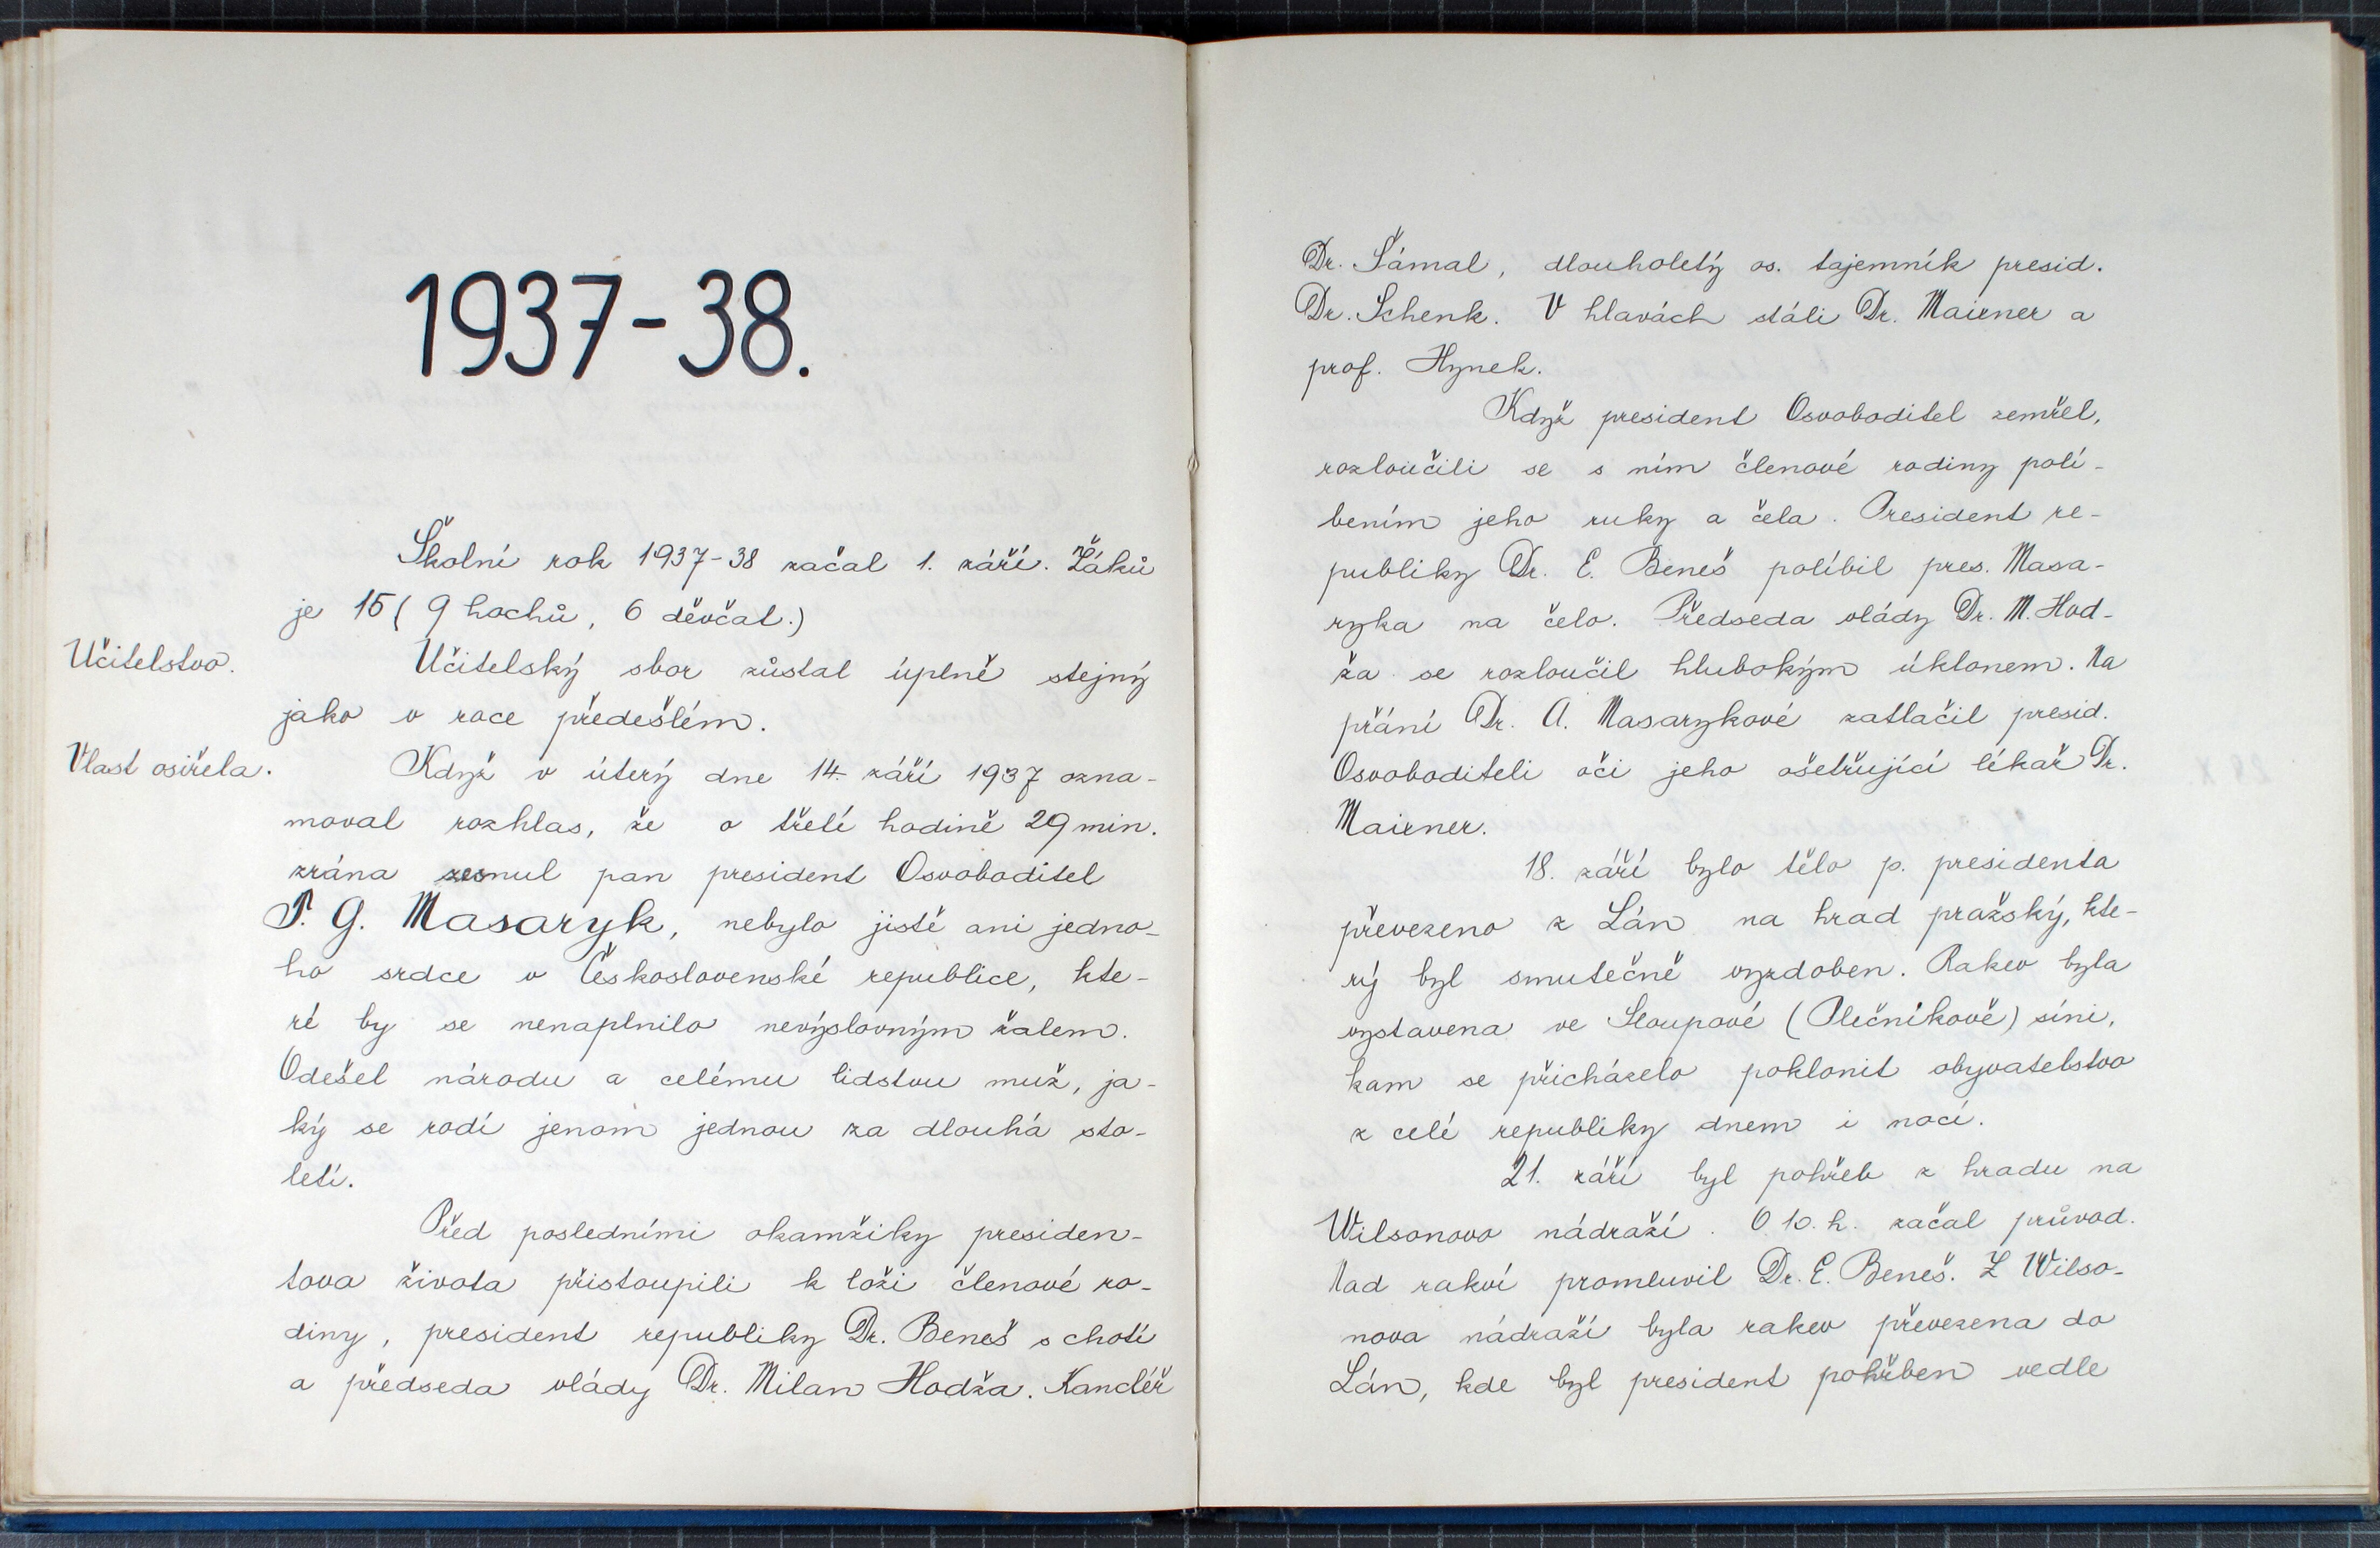 1937-38.
Školní rok 1937-38 začal 1. září. Žáků
je 15 ( 9 hochů, 6 děvčat.)
Učitelstvo.
Učitelský sbor zůstal úplně stejný
jako v roce předešlém.
Vlast osiřela.
Když v úterý dne 14. září 1937 ozna-
moval rozhlas, že o třetí hodině 29 min.
zrána zesnul pan president Osvoboditel
T. G. Masaryk, nebylo jistě ani jedno-
ho srdce v Československé republice, kte-
ré by se nenaplnilo nevýslovným žalem.
Odešel národu a celému lidstvu muž, ja-
ký se rodí jenom jednou za dlouhá sto-
letí.
Před posledními okamžiky presiden-
tova života přistoupili k loži členové ro-
diny, president republiky Dr. Beneš s chotí
a předseda vlády Dr. Milan Hodža. Kancléř
Dr. Šámal, dlouholetý os. tajemník presid.
Dr. Schenk. V hlavách stáli Dr. Maixner a
prof. Hynek.
Když president Osvoboditel zemřel,
rozloučili se s ním členové rodiny polí-
bením jeho ruky a čela. President re-
publiky Dr. E. Beneš políbil pres. Masa-
ryka na čelo. Předseda vlády Dr. M. Hod-
ža se rozloučil hlubokým úklonem. Na
přání Dr. A. Masarykové zatlačil presid.
Osvoboditeli oči jeho ošetřující lékař Dr.
Maixner.
18. září bylo tělo p. presidenta
převezeno z Lán na hrad pražský, kte-
rý byl smutečně vyzdoben. Rakev byla
vystavena ve Sloupové (Plečníkově) síni,
kam se přicházelo poklonit obyvatelstvo
z celé republiky dnem i nocí.
21. září byl pohřeb z hradu na
Wilsonovo nádraží. O 10. h. začal průvod.
Nad rakví promluvil Dr. E. Beneš. Z Wilso-
nova nádraží byla rakev převezena do
Lán, kde byl president pohřben vedle